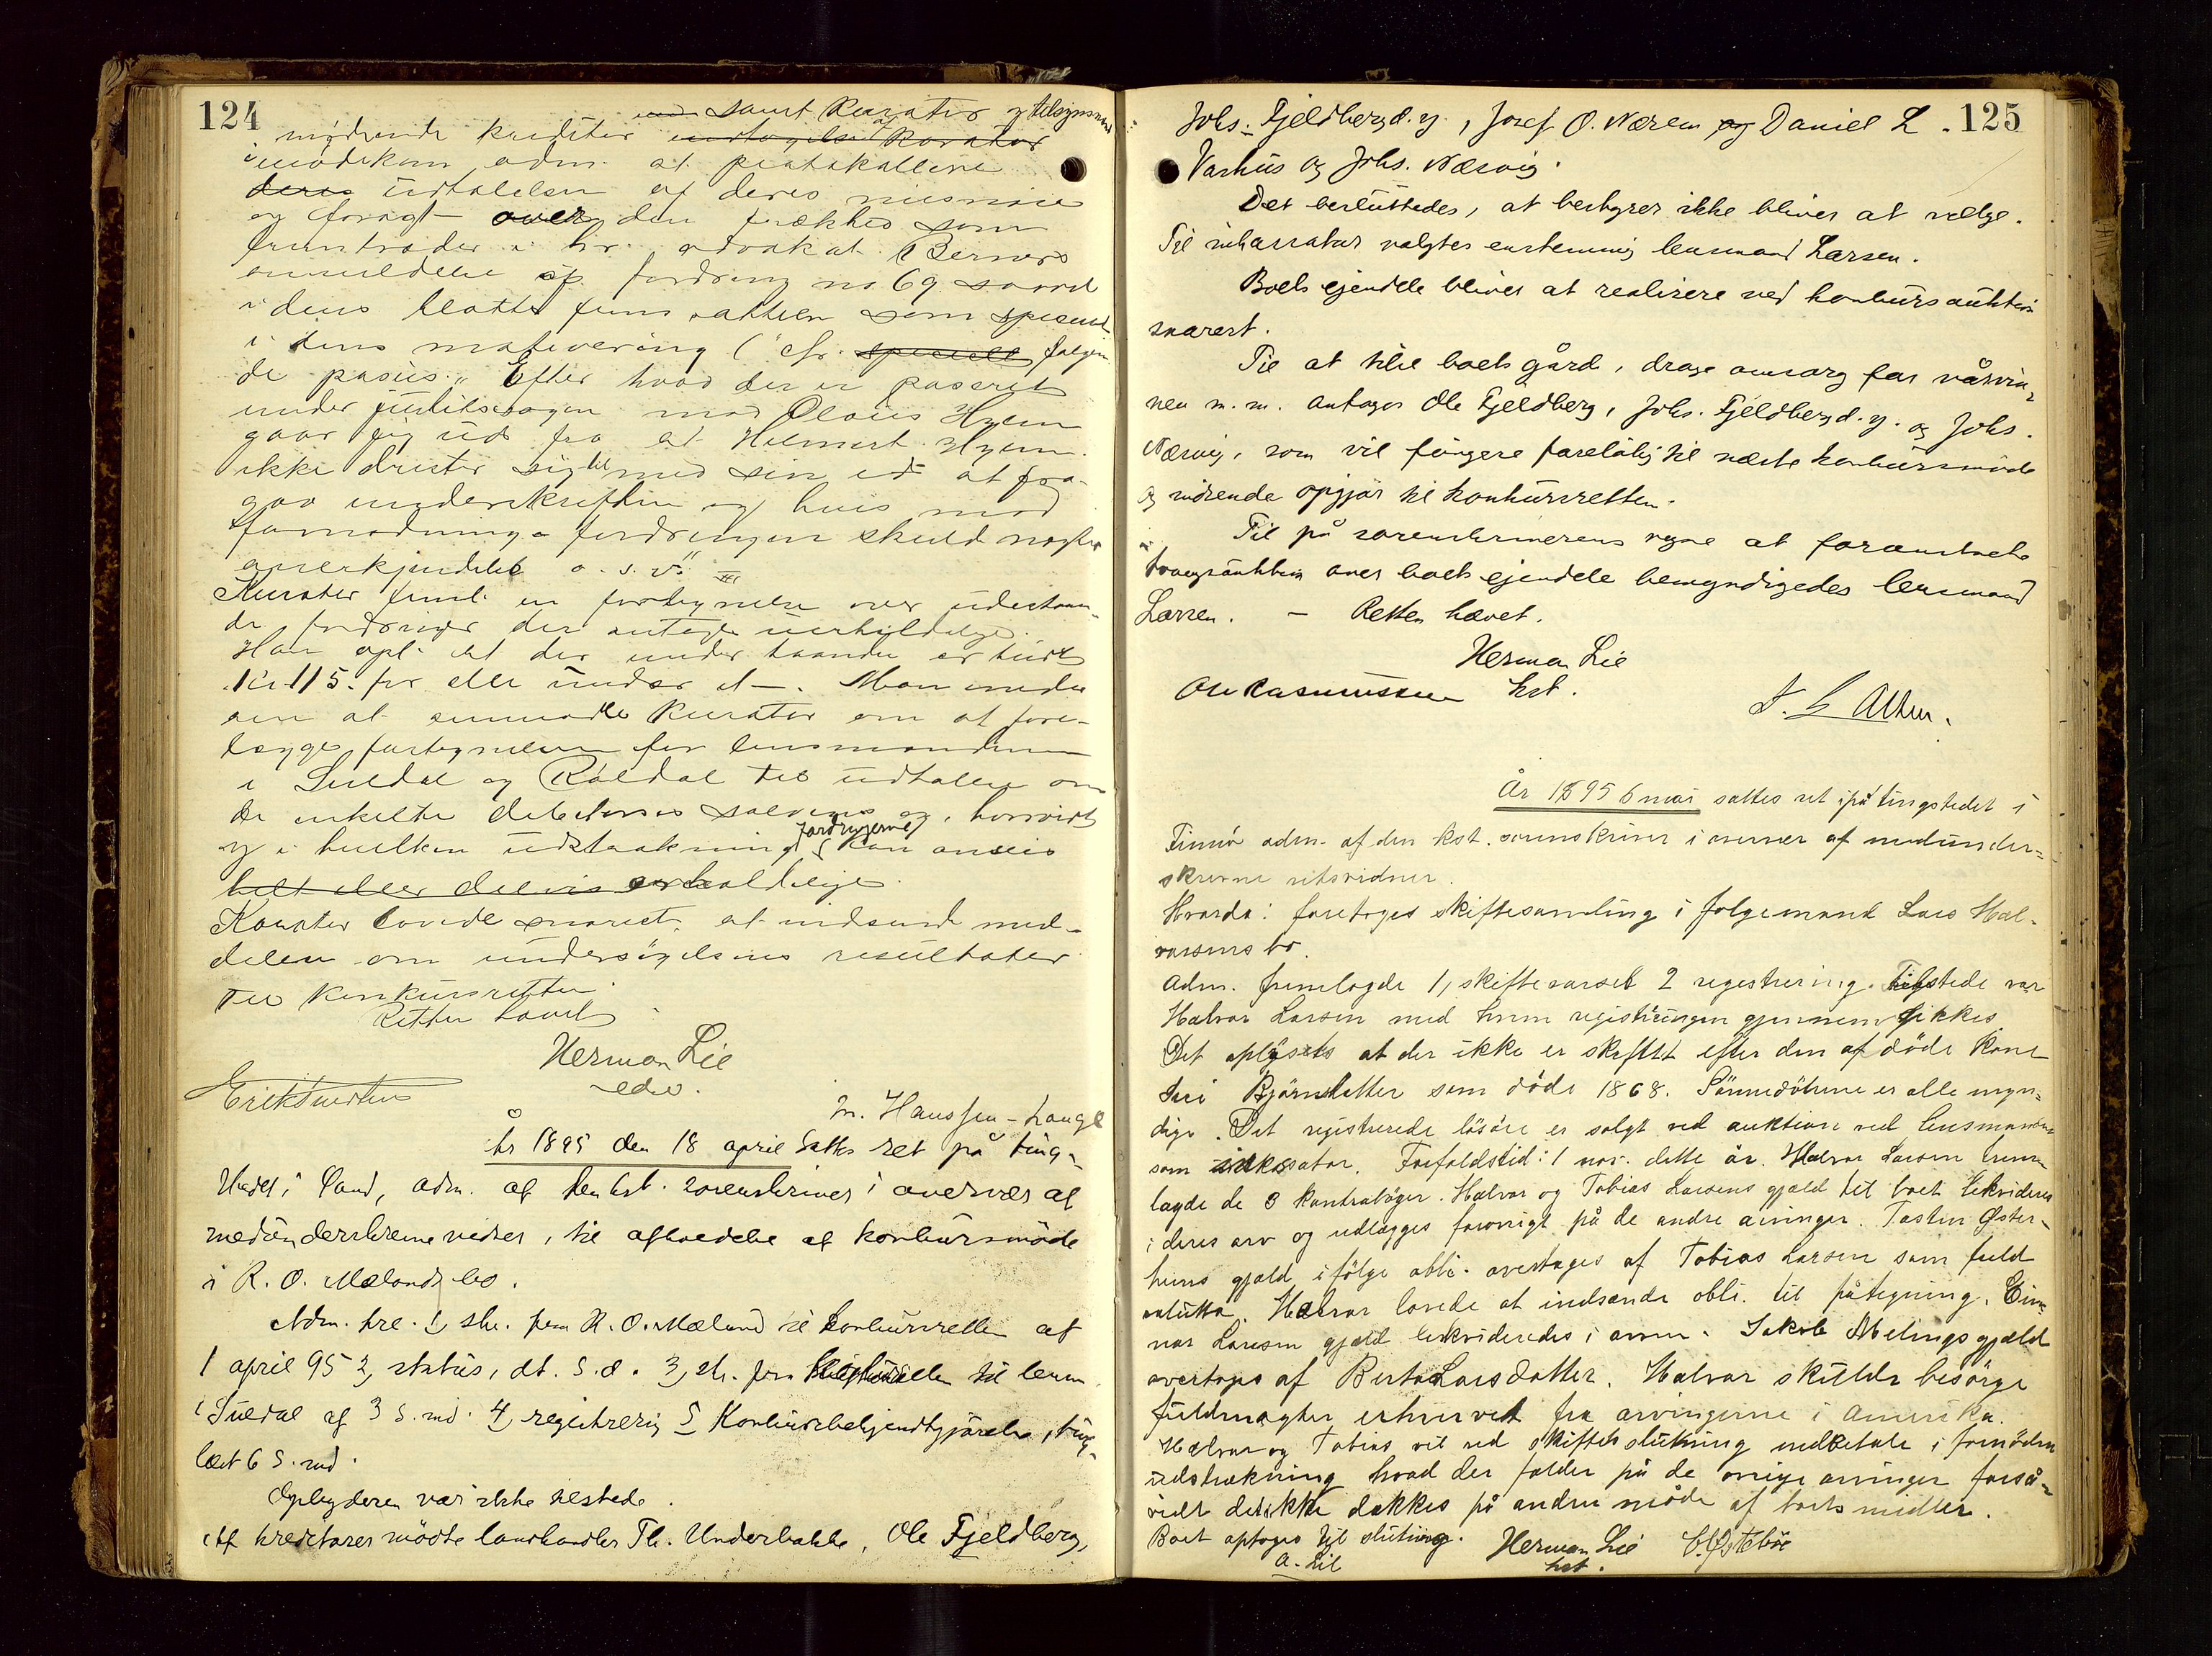 124
samt Kurator og tilsynsmand
mødende kreditor
imødekom adm. at protokollere
deres udtalelser af deres misnøie
og foragt over den frækhed som
fremtræder i hr. advokat Berners
anmeldelse af fordring no 69 saavel
i dens blotte fremsættelse som specielt
i dens motivering (cfr. specielt følgen-
de passus: "Efter hvad der er passeret
under justitssagen mod Olaus Hylen
gaar jeg ud fra at Helmert Hylen
ikke drister sig til med sin ed at fra-
gaa underskriften og hvis mod
formodning fordringen skulde nægtes
anerkjendelse o.s.v."
Kurator freml. en fortegnelse over udestaaen-
de fordringer der antages uerholdelige.
Han opl. at der under haanden er budt
Kr 115. for alle under et. Man enedes
om at anmode kurator om at fore-
lægge fortegnelsen for lensmændene
i Suldal og Røldal til udtalelse om
de enkelte debitorers solvens og, hvorvidt
og i hvilken udstrækning fordringerne kan ansees
helt eller delvis erholdelige.
Kurator lovede snarest at indsende med-
delelse om undersøgelsens resultater
til konkursretten.
Retten hævet
Herman Lie
edsv.
Erik Knudsen
M. Hanssen-Hauge
År 1895 den 18 april sattes ret på ting-
stedet i Sand, adm. af den kst. sorenskriver i overvær af
medunderskrevne vidner, til afholdelse af konkursmøde
i R. O. Mælands bo.
Adm. frl. 1, skr. fra R. O. Mæland til konkursretten af
1 april 95 2, status, dt. s.d. 3, skr. fra skifteretten til lensm.
i Suldal af 3 s.md. 4, registrering 5 Konkursbekjendtgjørelse, ting-
læst 6 s.md.
Opbyderen var ikke tilstede.
Af kreditorer mødte landhandler Th. Underbakke, Ole Fjeldberg,
125
Johs. Fjeldberg d.y., Josef O. Næren og Daniel L.
Varhus og Johs. Næsvig.
Det besluttedes, at bestyrer ikke bliver at vælge.
Til inkassator valgtes enstemmig lensmand Larsen.
Boets ejendele bliver at realisere ved konkursauktion
snarest.
Til at tilse boets gård, drage omsorg for vårvin-
nen m.m. antages Ole Fjeldberg, Johs. Fjeldberg d.y. og Johs.
Næsvig, som vil fungere foreløbig til næste konkursmøde
og indsende opgjør til konkursretten.
Til på sorenskriverens vegne at foranstalte
tvangsauktion over boets ejendele bemyndigedes lensmand
Larsen. – Retten hævet.
Herman Lie
kst.
Ole Rasmussen
År 1895 6 mai sattes ret på tingstedet i
Finnø adm. af den kst. sorenskriver i overvær af medunder-
skrevne retsvidner.
Hvorda: foretoges skiftesamling i følgemand Lars Hal-
varsens bo.
Adm. fremlagde 1, skiftevarsel 2 registrering. Tilstede var
Halvar Larsen med hvem registeringen gjennemgikkes.
Det oplystes at der ikke er skiftet efter den afdøde kone
Siri Bjørnsdatter som døde 1868. Sønnedøtrene er alle myn-
dige. Det registrerede løsøre er solgt ved auktion ved lensmanden
som inkassator. Forfaldstid: 1 nov. dette år. Halvar Larsen frem-
lagde de 3 kontrabøger. Halvar og Tobias Larsens gjæld til boet likvideres
i deres arv og udlægges forøvrigt på de andre arvinger. Tosten Øster-
hus gjæld ifølge obli. overtages af Tobias Larsen som fuld
valutta. Halvar lovede at indsende obli. til påtegning. Ein-
nar Larsens gjæld likvideredes i arven. Jakob Melings gjæld
overtages af Berta Larsdatter. Halvar skulde besørge
fuldmagter erhvervet fra arvingerne i Amerika.
Halvar og Tobias vil ved skiftets slutning indbetale i fornøden
udstrækning hvad der falder på de øvrige arvinger forså-
vidt det ikke dækkes på anden måde af boets midler.
Boet optages til slutning.
A. Lie
Herman Lie
kst.
C. Østebøe